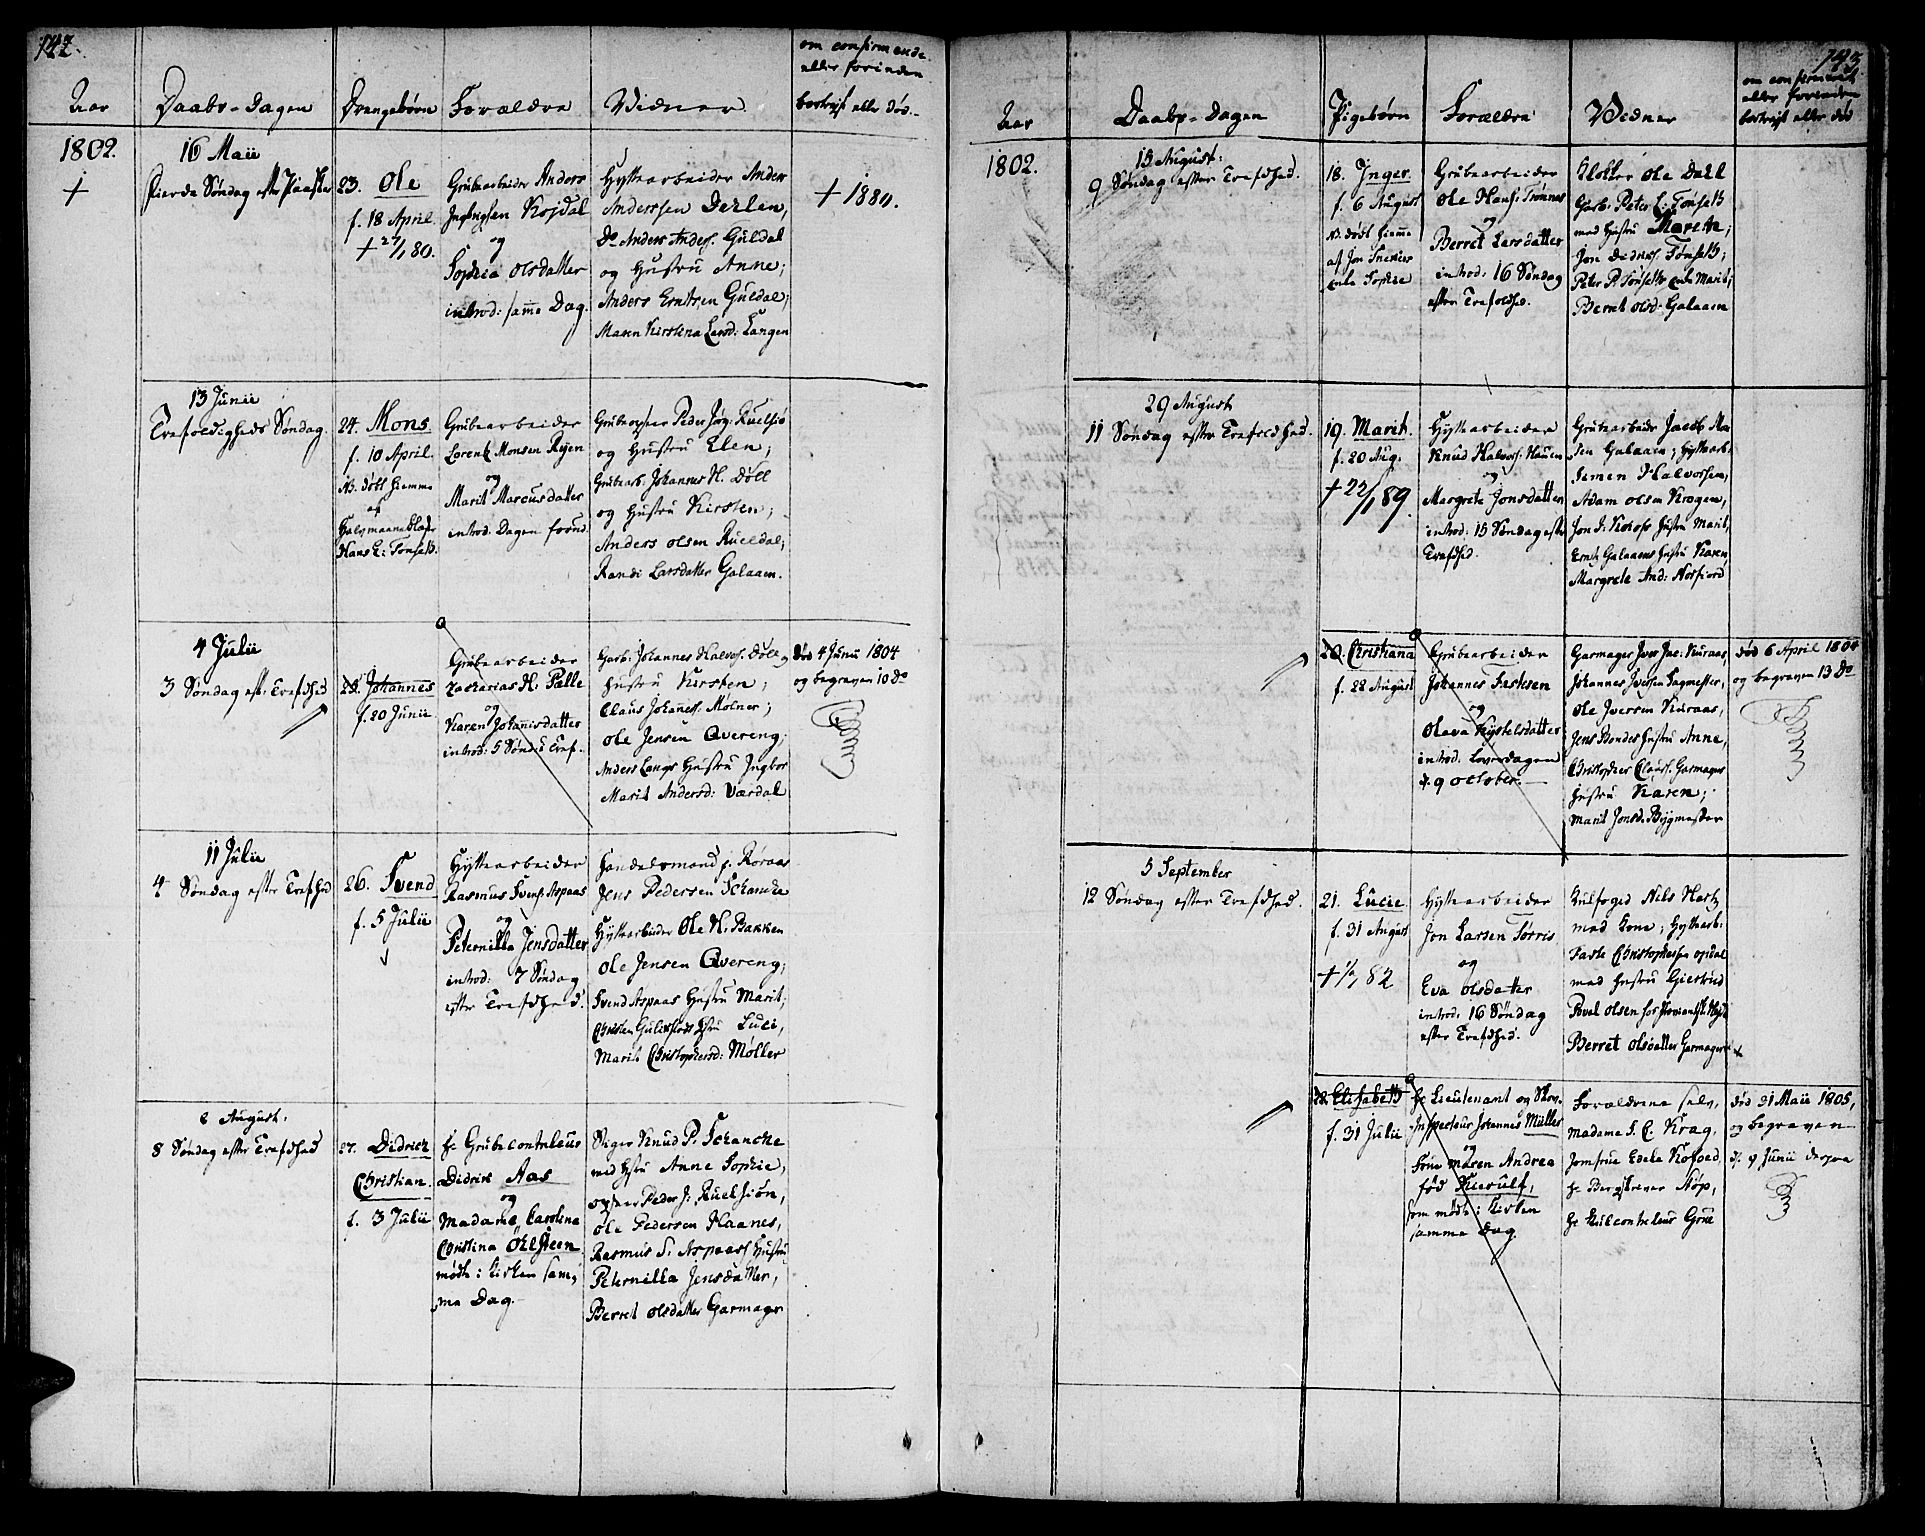 142.
Aar
Daabs-Dagen
Drengebørn
Forældre
Vidner
om confirmerede
eller forinden
bortrejst eller død.
1802.
16 Maii
Fierde Søndag efter Paaske
23. Ole
f. 18 April
Grubearbeider Anders
og
Sophia Olsdatter
introd: samme Dag.
Hyttearbeider Anders
Anderssen Derlen,
Do Anders Anders. Guldal
og Hustru Anne;
Anders Erntsen Guldal;
Maren Kirstina Larsd: Langen
+ 1880.
13 Junii
Trefoldigheds Søndag.
24. Mons
f. 10 April
NB. døbt hiemme
af
Hans L: Tønseth.
Grubearbeider
Lorentz Monsen Reyen
og
Marit Marcusdatter
introd. Dagen forud.
og Hustru Elen;
Grubearb. Johannes H. Döll
og Hustru Kirsten;
Anders Olsen Rueldal;
Randi Larsdatter Galaaen.
4 Julii
3 Søndag eft. Trefdhed
25. Johannes
f. 20 Junii
Grubearbeider
Zacharias H. Palle
og
Karen Johannisdatter
introd: 5 Sønd: e Tref.
Garb: Johannes Halvors. Döll og
Hustru Kirsten;
Claus Johannes. Molner;
Ole Jensen Qvereng;
Anders Langs Hustru Ingbor
Marit Andersd: Værdal
død 4 Junii 1804
og begraven 10 do
11 Julii
4 Søndag efter Trefdhed
26. Svend
f. 5 Julii
Hyttearbeider
Rasmus Svens. Aspaas
og
Peternilla Jensdatter
introd: 7 Søndag
efter Trefdhed.
Handelsmand p. Røraas
Jens Pedersen Schancke
Hyttearbeider Ole H. Bakken
Ole Jensen Qvereng;
Svend Aspaas Hustru Marit;
Marit Christophersd: Møller
8 August.
8 Søndag efter Trefdhed
27. Didrich
Christian.
f. 3 Julii
Hr Grubecontroleur
Didrik Aas
og
Madame Carolina
Christina Ohlsteen
mødte i Kirken sam-
me Dag.
Stiger Knud P. Schancke
med Hstru Anne Sophie,
Ole Pedersen Haanes,
Rasmus S. Aspaas Hustru
Peternilla Jensdatter,
Berret Olsdatter Garmager
143.
Aar
Daabs-Dagen
Pigebørn
Forældre
Vidner
om confirmeret
eller forinden
bortrejst eller død
1802.
15 August:
9 Søndag efter Trefdhed.
18. Inger
f. 6 August
NB. døbt hiemme
af Jon Snecker
Enke Sophie
Grubearbeider
Ole Hans. Trønnes
og
Berret Larsdatter
introd: 16 Søndag
efter Trefoldhed.
Klokker Ole Dahl
Garb. Peter L: Tønseth
med Hustru Marethe;
Peter P. Tønseths Enke Marit;
Bernt Olsd: Galaaen
29 August
11 Søndag efter Trefoldhed.
19. Marit.
f. 20 Aug.
Hyttearbeider
Knud Halvors. Hauen
og
Margrete Jonsdatter
introd: 15 Søndag efter
Trefdhed.
Grubearbeider Jacob Han-
sen Galaaen; Hyttearb.
Simen Halvorsen,
Adam Olsen Krogen,
Ernts Galaaens Hustru Karen
Margrete And: Norfiord
20. Christiana
f. 28 August
Grubearbeider
Johannes Feskesen
og
Olava Kystelsdatter
introd. Løverdagen
d. 9 October.
Garmager Iver Jac: Kuraas,
Johannes Iversen Sagmester,
Ole Iversen Kuraas,
Jens Bondes Hustru Anne,
Christopher Clauss. Garmagers
Hustru Karen;
Marit Jonsd. Bygmester
død 6 April 1804
og begraven 13 Do
5 September
12 Søndag efter Trefdhed.
21. Lucie
f. 31 August
Hyttearbeider
Jon Larsen Tørris
og
Eva Olsdatter
introd: 16 Søndag
efter Trefdhed.
Kulfoged Nils Hartz
med Kone; Hyttearb:
Faste Christophersen Opdal
med Hustru Giertrud
Berret Olsdatter Garmager
22. Elisabeth
f. 31 Julii
Hr Lieutenant og Skov-
Inspecteur Johannes Müller
og
Frue Maren Andrea
fød Hiorulf,
som mødte i Kirken
samme Dag.
Forældrene selv,
Madame S. C. Krag,
Jomfrue Edele Kofoed,
Hr Bergskriver Støp,
Hr Kulcontroleur Grue
død 31 Maii 1805,
og begraven
d. 9 Junii derpaa